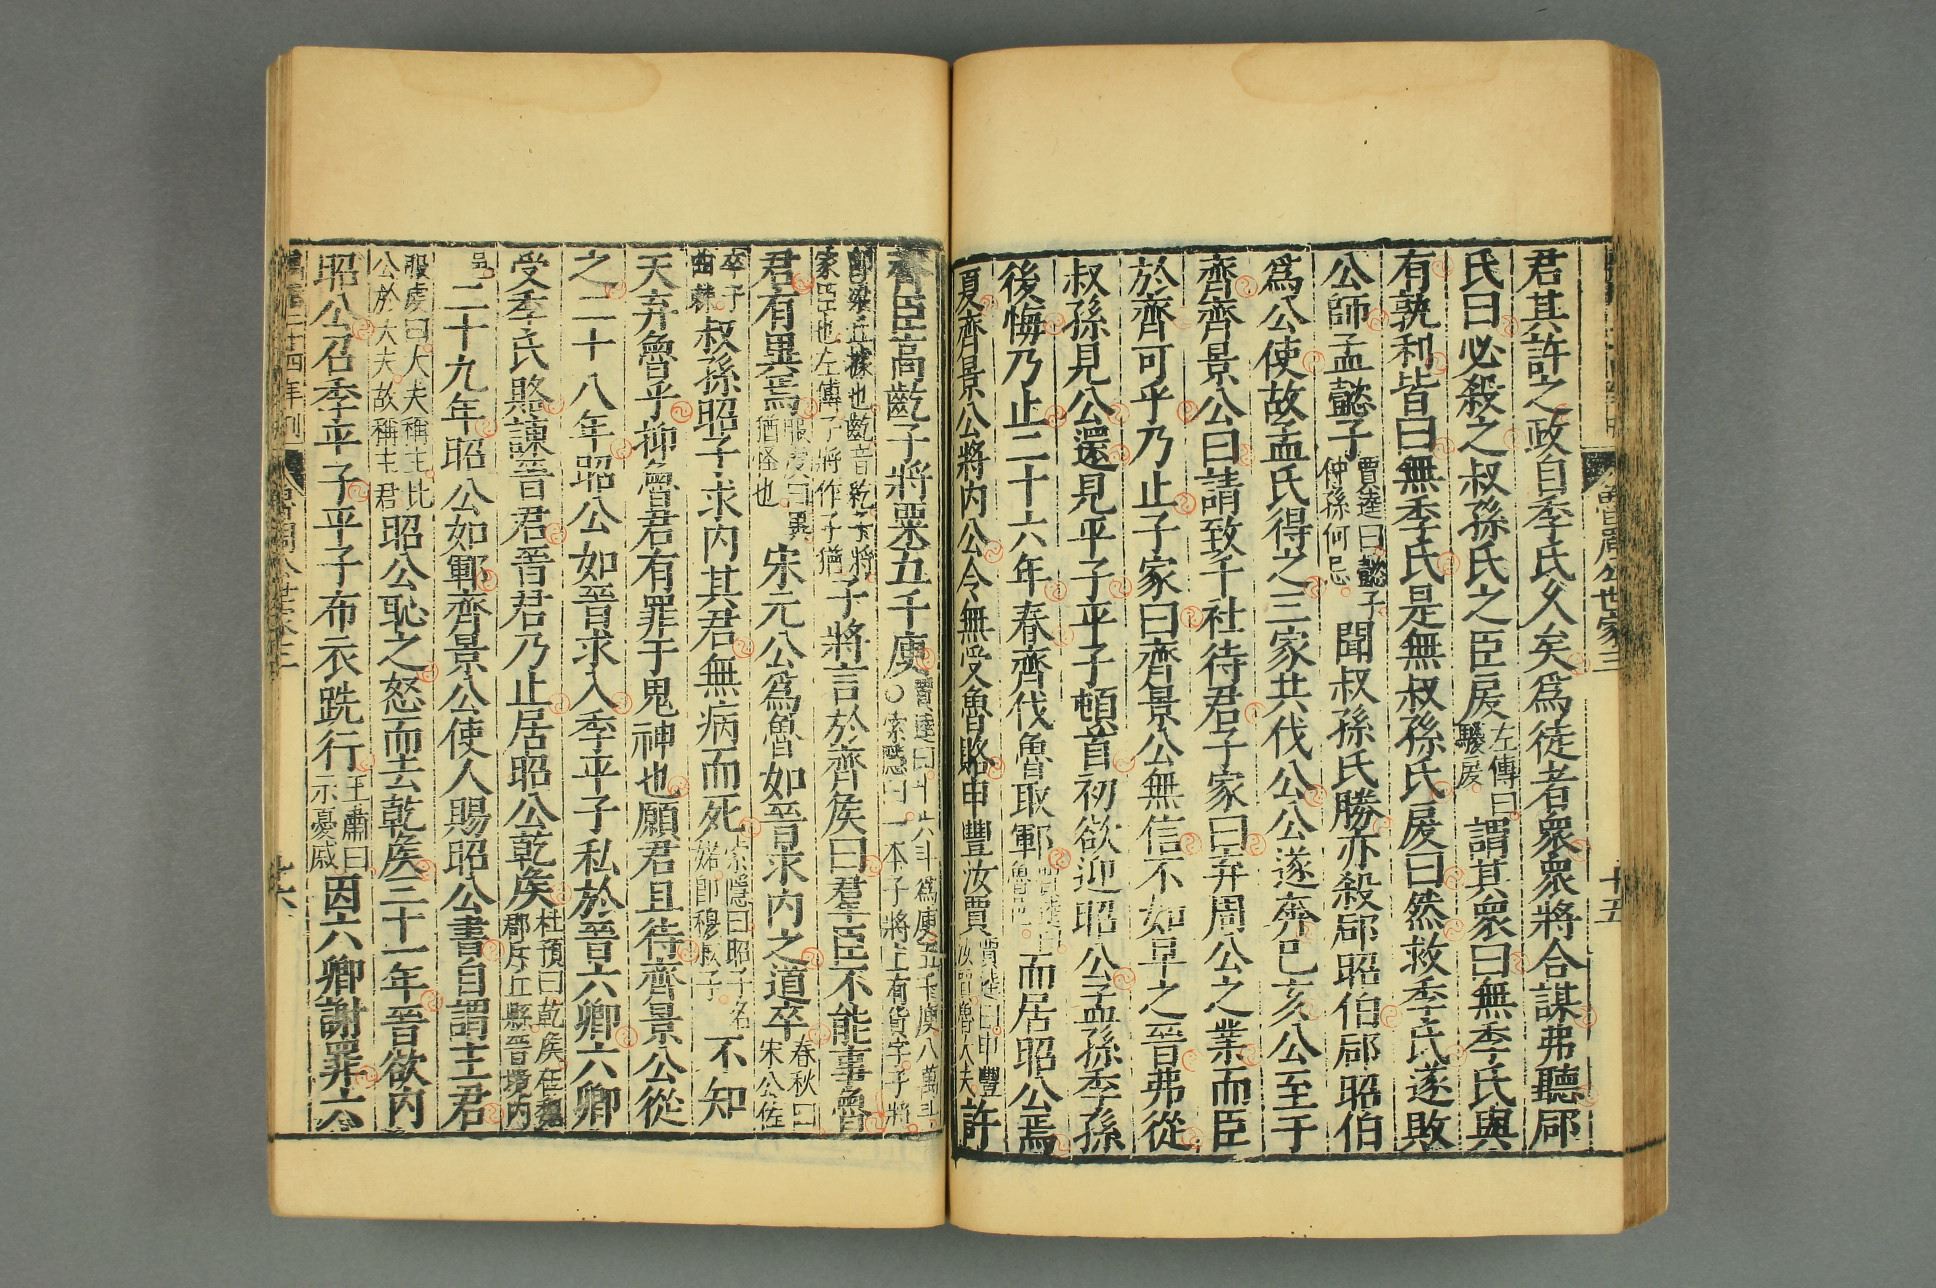 魯周公世家三
十五
君其許之政自季氏久矣爲徒者衆衆將合謀弗聽郈
氏曰必殺之叔孫氏之臣戾左傳曰鬷戾謂其衆曰無季氏與
有孰利皆曰無季氏是無叔孫氏戾曰然救季氏遂敗
公師孟懿子賈逵曰懿子仲孫何忌聞叔孫氏勝亦殺郈昭伯郈昭伯
爲公使故孟氏得之三家共伐公公遂奔己亥公至于
齊齊景公曰請致千社待君子家曰弃周公之業而臣
於齊可乎乃止子家曰齊景公無信不如早之晉弗從
叔孫見公還見平子平子頓首初欲迎昭公孟孫季孫
後悔乃止二十六年春齊伐魯取鄆而居昭公焉
夏齊景公將內公令無受魯賂申豐汝賈賈逵曰申豐汝賈魯大夫許
齊臣高齕子將粟五千庾賈逵曰十六斗爲庾五千庾八萬斗○索隱曰一本子將上有貨字子將
即梁丘據也齕音紇子將家臣也左傳子將作子猶子將言於齊侯曰羣臣不能事魯
君有異焉服虔曰異猶怪也宋元公爲魯如晉求內之道卒春秋曰宋公佐
卒于曲棘叔孫昭子求內其君無病而死索隱曰昭子名婼即穆叔子不知
天弃魯乎抑魯君有罪于鬼神也願君且待齊景公從
之二十八年昭公如晉求入季平子私於晉六卿六卿
受季氏賂諫晉君晉君乃止居昭公乾侯杜預曰乾侯在魏郡斥丘縣晉境內
邑二十九年昭公如鄆齊景公使人賜昭公書自謂主君
服虔曰大夫稱主比公於大夫故稱主君昭公恥之怒而去乾侯三十一年晉欲內
昭公召季平子平子布衣跣行王肅曰示憂戚因六卿謝罪六
魯周公世家三